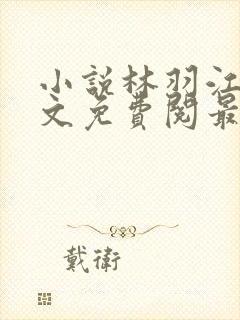 小說林羽江
文免費閱最
戴衛